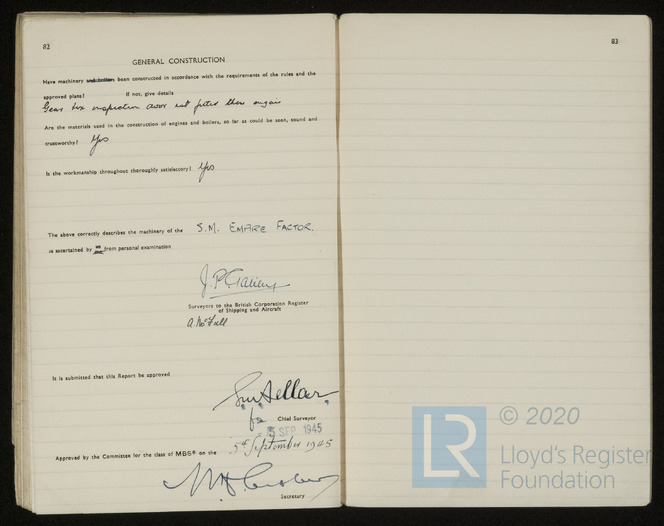 82
GENERAL CONSTRUCTION
Have machinery and boilers been constructed in accordance with the requirements of the rules and the
approved plans? If not, give details
Gear box inspection doors not fitted these engines
Are the materials used in the construction of engines and boilers, so far as could be seen, sound and
trustworthy? Yes
Is the workmanship throughout thoroughly satisfactory? Yes
The above correctly describes the machinery of the S.M. EMPIRE FACTOR.
as ascertained by us from personal examination
J.P.
Surveyors to the British Corporation Register
of Shipping and Aircraft
A. McFall
It is submitted that this Report be approved
for
Chief Surveyor
5 SEP 1945
Approved by the Committee for the class of MBS* on the 5th September 1945
Secretary
83
LR
© 2020
Lloyd's Register
Foundation